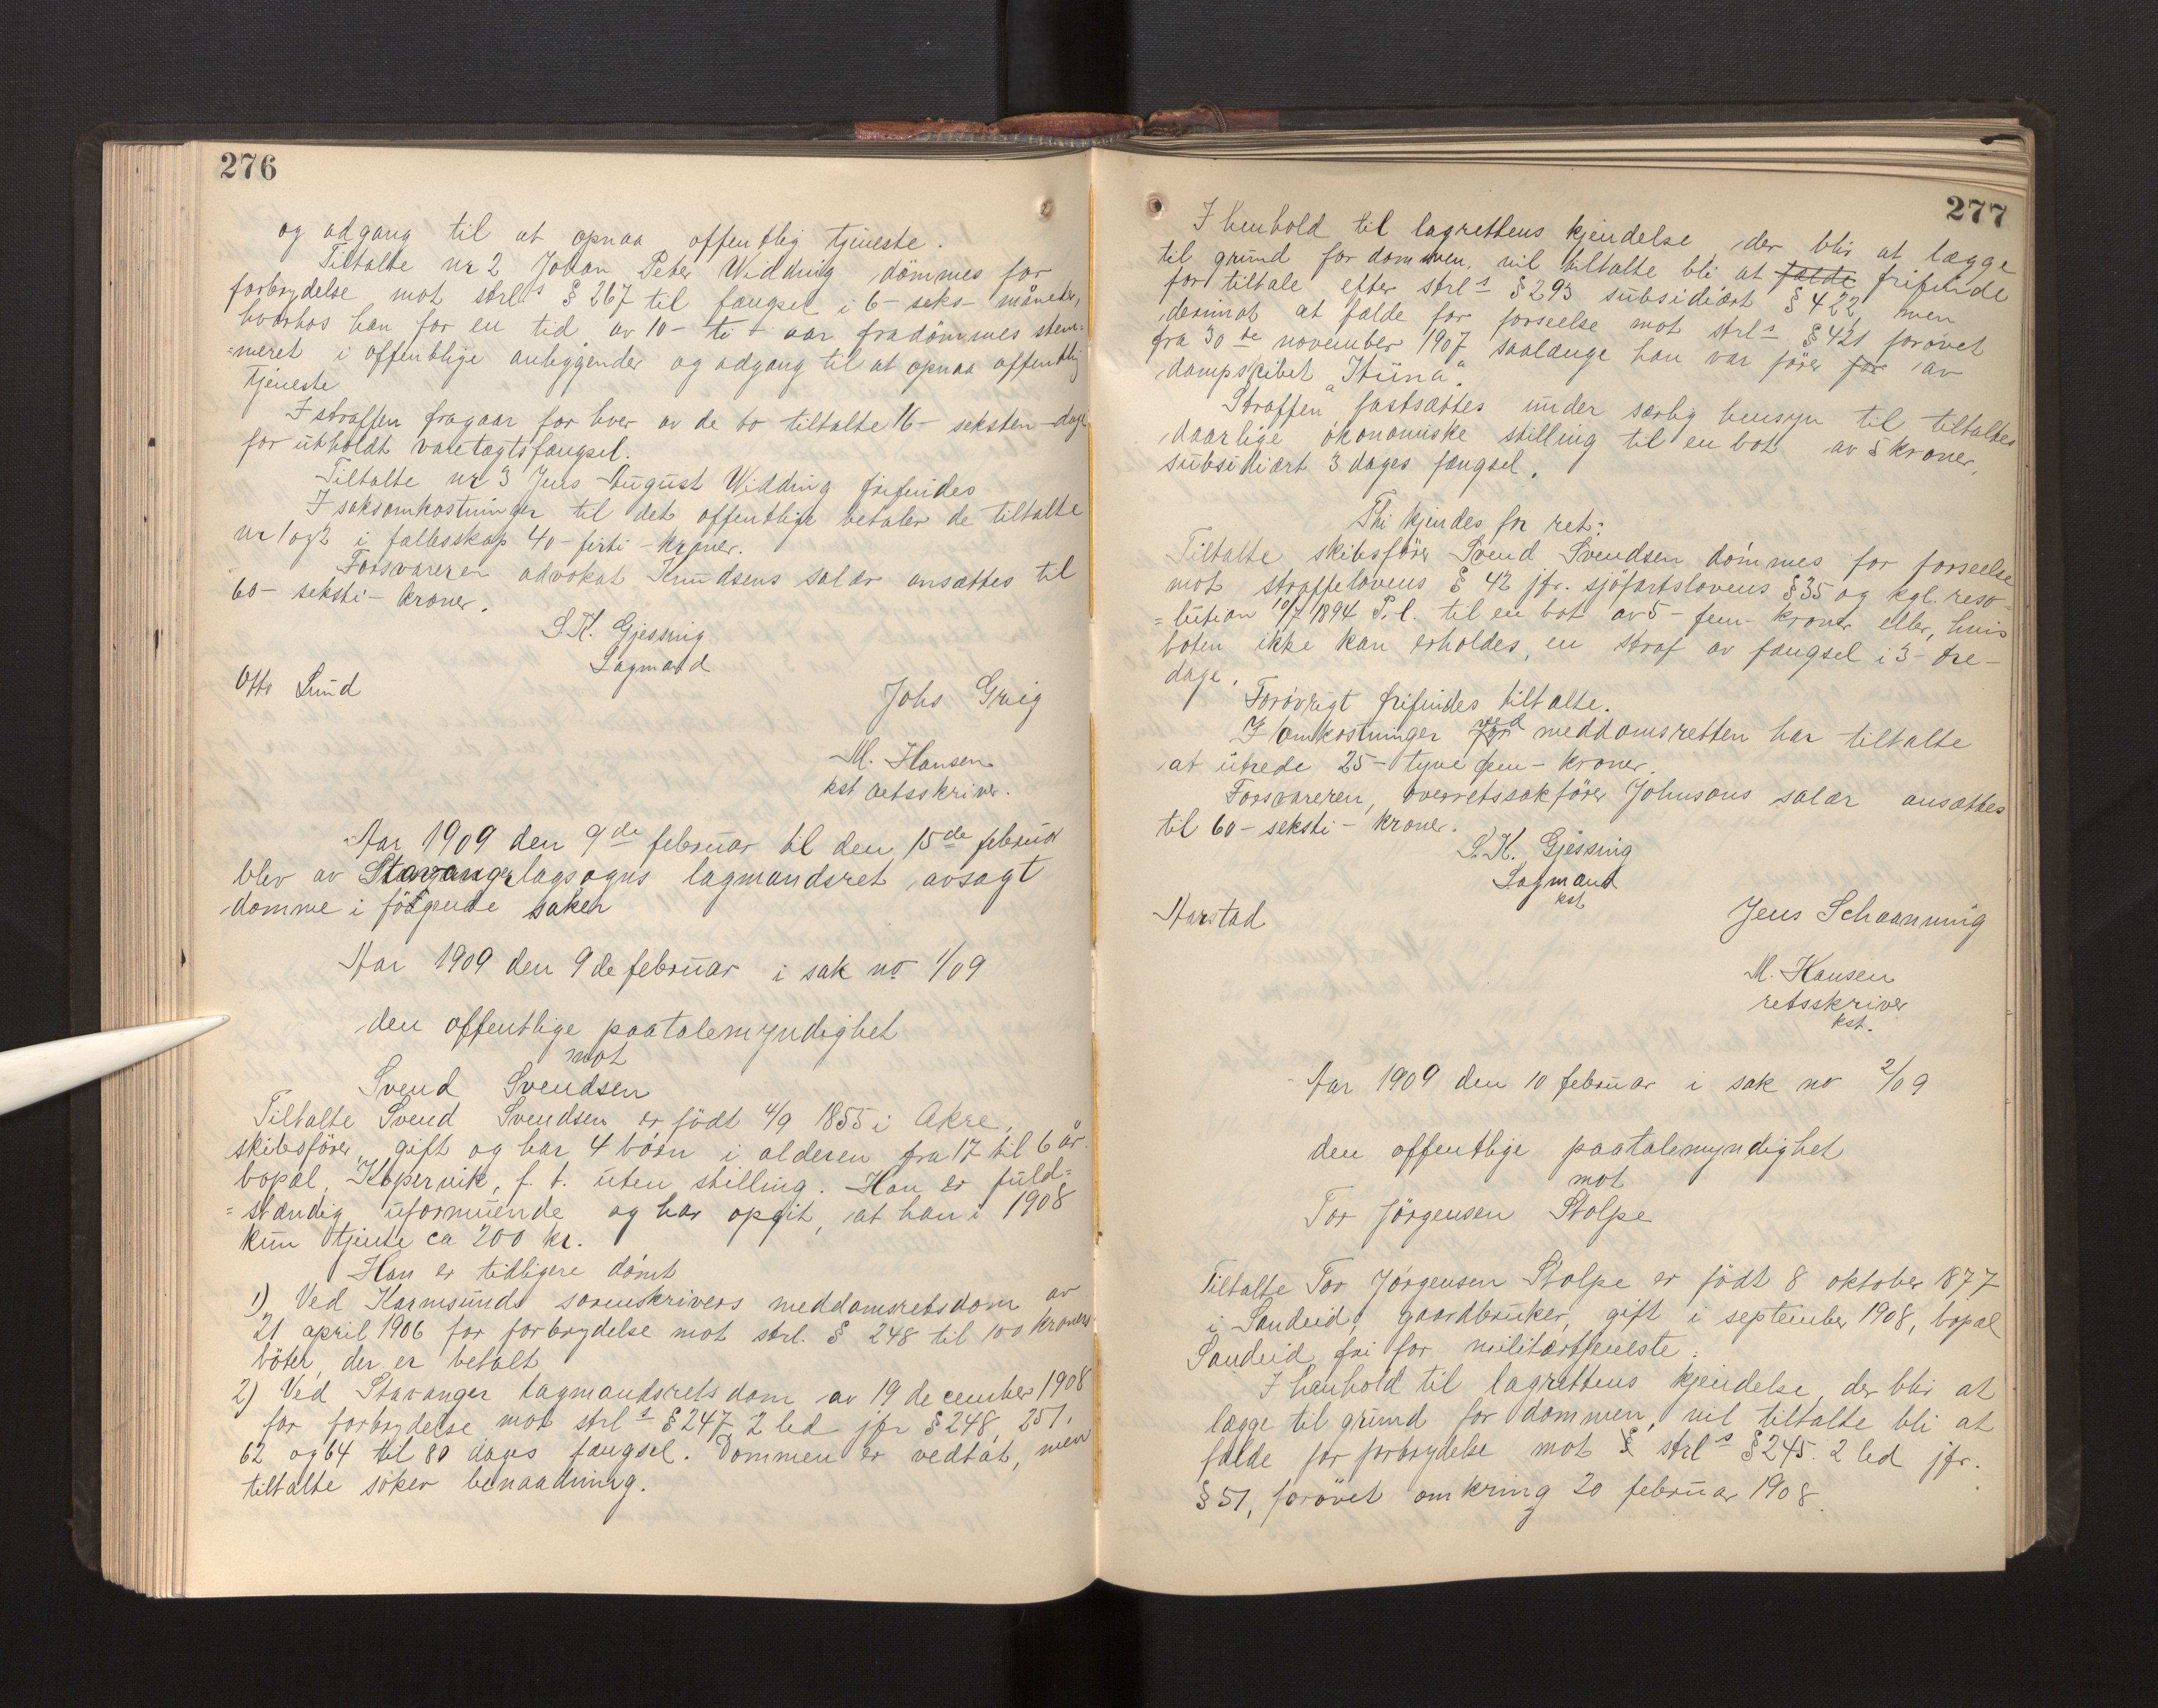 276
og adgang til at opnaa offentlig tjeneste.
Tiltalte nr 2 Johan Peter Widding dömmes for
forbrydelse mot strls § 267 til fængsel i 6 - seks - måneder,
hvorhos han for en tid av 10 - ti - aar fradömmes stem-
=meret i offentlige anliggender og adgang til at opnaa offentlig
tjeneste
I straffen fragaar for hver av de to tiltalte 16 - seksten - dage
for utholdt varetægtsfængsel.
Tiltalte nr 3 Jens August Widding frifindes
I saksomkostninger til det offentlige betaler de tiltalte
nr 1 og 2 i fællesskap 40 - firti - kroner.
Forsvareren advokat Knudsens salær ansættes til
60 - seksti - kroner.
S.K. Gjessing
Lagmand
Otto Lund
Johs Grieg
M. Hansen
kst retsskriver.
Aar 1909 den 9de februar til den 15de februar
blev av Stavanger lagsogns lagmandsret avsagt
domme i fölgende saker
Aar 1909 den 9de februar i sak no 1/09
den offentlige paatalemyndighet
mot
Svend Svendsen
Tiltalte Svend Svendsen er födt 4/9 1855 i Akre,
skibsförer, gift og har 4 börn i alderen fra 17 til 6 år.
bopal, Kopervik, f. t. uten stilling. Han er fuld=
=stændig uformuende og har opgit, at han i 1908
kun tjente ca 200 kr.
Han er tidligere dömt
1) Ved Karmsunds sorenskrivers meddomsretsdom av
21 april 1906 for forbrydelse mot strl. § 248 til 100 kroners
böter, der er betalt
2) Ved Stavanger lagmandsrets dom av 19 december 1908
for forbrydelse mot strls § 247, 2 led jfr § 248, 251,
62 og 64 til 80 dages fængsel. Dommen er vedtat, men
tiltalte söker benaadning.
277
I henhold til lagrettens kjendelse, der blir at lægge
til grund for dommen, vil tiltalte bli at fælde frifinde
for tiltale efter strls § 293 subsidiært § 422, men
derimot at fælde for forseelse mot strls § 421 forövet
fra 30de november 1907 saalænge han var förer for av
dampskibet "Stiina".
Straffen fastsættes under særlig hensyn til tiltaltes
daarlige ökonomiske stilling til en bot av 5 kroner,
subsidiært 3 dages fængsel.
Thi kjendes for ret:
Tiltalte skibsförer Svend Svendsen dömmes for forseelse
mot straffelovens § 42 jfr. sjöfartslovens § 35 og kgl. reso-
=lution 10/7 1894 P.l. til en bot av 5 - fem - kroner eller, hvis
boten ikke kan erholdes, en straf av fængsel i 3 - tre -
dage.
Forövrigt frifindes tiltalte.
I omkostninger for ved meddomsretten har tiltalte
at utrede 25 - tyve fem - kroner.
Forsvareren, overretssakförer Johnsons salær ansættes
til 60 - seksti - kroner.
S.K. Gjessing
Lagmand
kst
Aarstad
Jens Schaanning
M. Hansen
retsskriver
kst.
Aar 1909 den 10 februar i sak no 2/09
den offentlige paatalemyndighet
mot
Tor Jörgensen Stolpe
Tiltalte Tor Jörgensen Stolpe er födt 8 oktober 1877
i Sandeid, gaardbruker, gift i september 1908, bopal
Sandeid, fri for militærtjeneste.
I henhold til lagrettens kjendelse, der blir at
lægge til grund for dommen, vil tiltalte bli at
fælde for forbrydelse mot § strls § 245. 2 led jfr.
§ 51, forövet omkring 20 februar 1908.